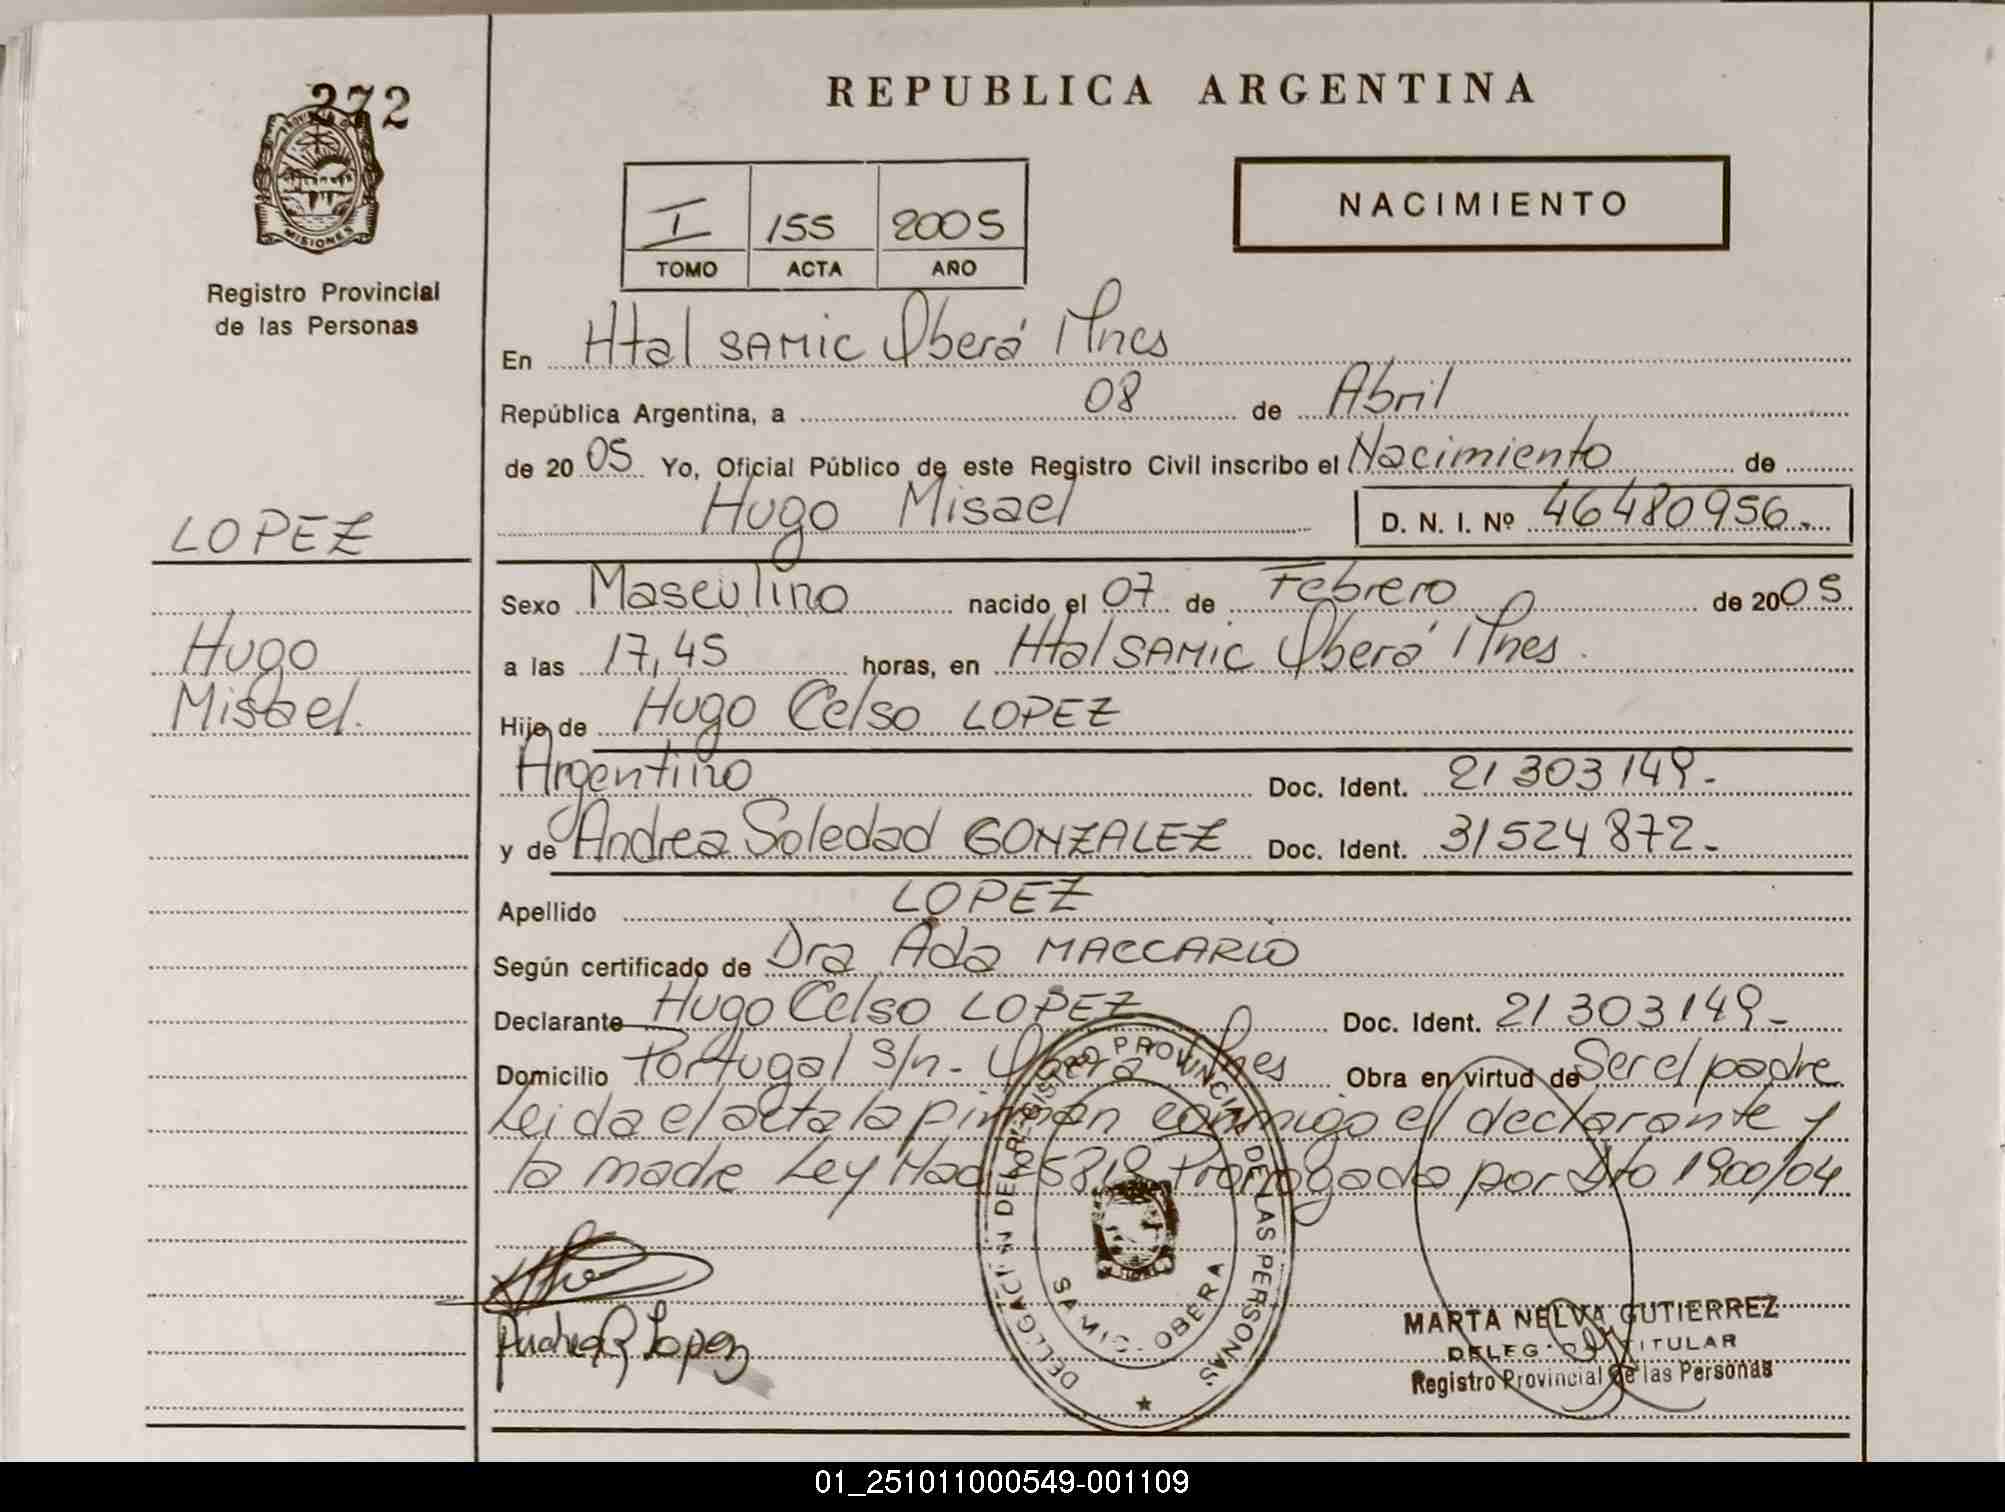 272
PROVINCIA DE
MISIONES
Registro Provincial
de las Personas
LOPEZ
Hugo
Misael.
REPUBLICA ARGENTINA
I 155 2005
TOMO ACTA AÑO
NACIMIENTO
En Htal SAMIC Oberá Mnes
República Argentina, a 08 de Abril
de 20 05 Yo, Oficial Público de este Registro Civil inscribo el Nacimiento de
Hugo Misael D. N. I. Nº 46480956.
Sexo Masculino nacido el 07 de Febrero de 2005
a las 17,45 horas, en Htal SAMIC Oberá Mnes.
Hijo de Hugo Celso LOPEZ
Argentino Doc. Ident. 21 303 149-
y de Andrea Soledad GONZALEZ Doc. Ident. 31524 872-
Apellido LOPEZ
Según certificado de Dra Ada MACCARIO
Declarante Hugo Celso LOPEZ Doc. Ident. 21 303 149-
Domicilio Portugal s/n- Oberá Mnes Obra en virtud de Ser el padre
Leida el acta la firman conmigo el declarante y
la madre Ley Nac 25819 Prorrogada por Dto 1900/04
DELEGACION DEL REGISTRO PROVINCIAL DE LAS PERSONAS
SAMIC - OBERA
Lopez
MARTA NELVA GUTIERREZ
DELEG. TITULAR
Registro Provincial de las Personas
01_251011000549-001109